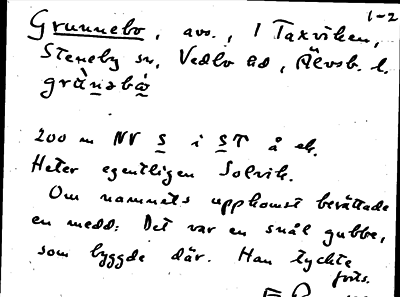 1-2
Grunnebo, avs., I Taxviken,
Steneby sn, Vedbo hd, Älvsb. l.
grùnəbò̤
200 m NV S i ST å ek.
Heter egentligen Solvik.
Om namnets uppkomst berättade
en medd: Det var en snål gubbe,
som byggde där. Han tyckte
forts.